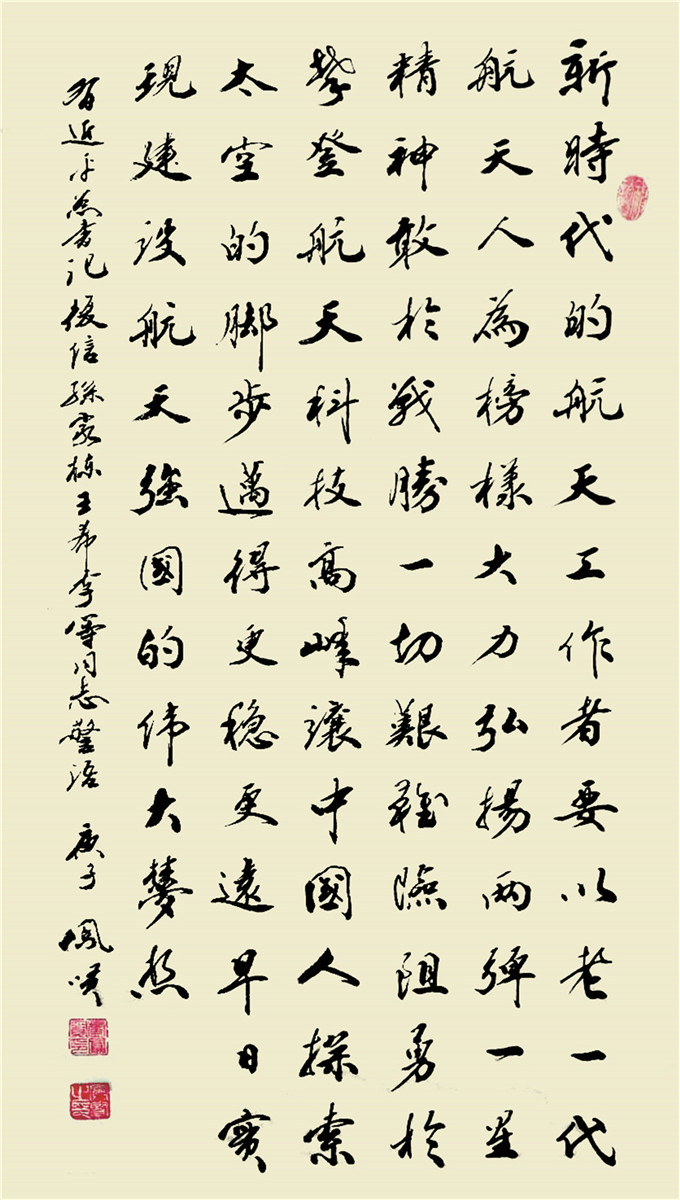 新時代的航天工作者要以老一代
航天人為榜樣大力弘揚兩弹一星
精神敢於戰勝一切艱難險阻勇於
攀登航天科技高峰讓中國人探索
太空的脚步邁得更稳更遠早日實
現建設航天強國的伟大夢想
習近平总書记復信孫家栋王希季等同志警語 庚子 鳳